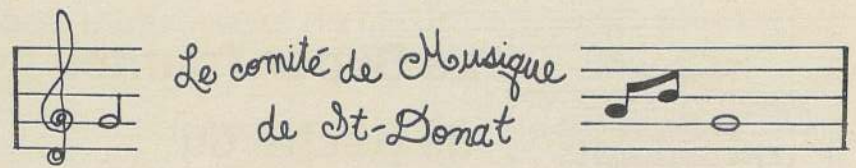 Le comité de Musique
de St-Donat